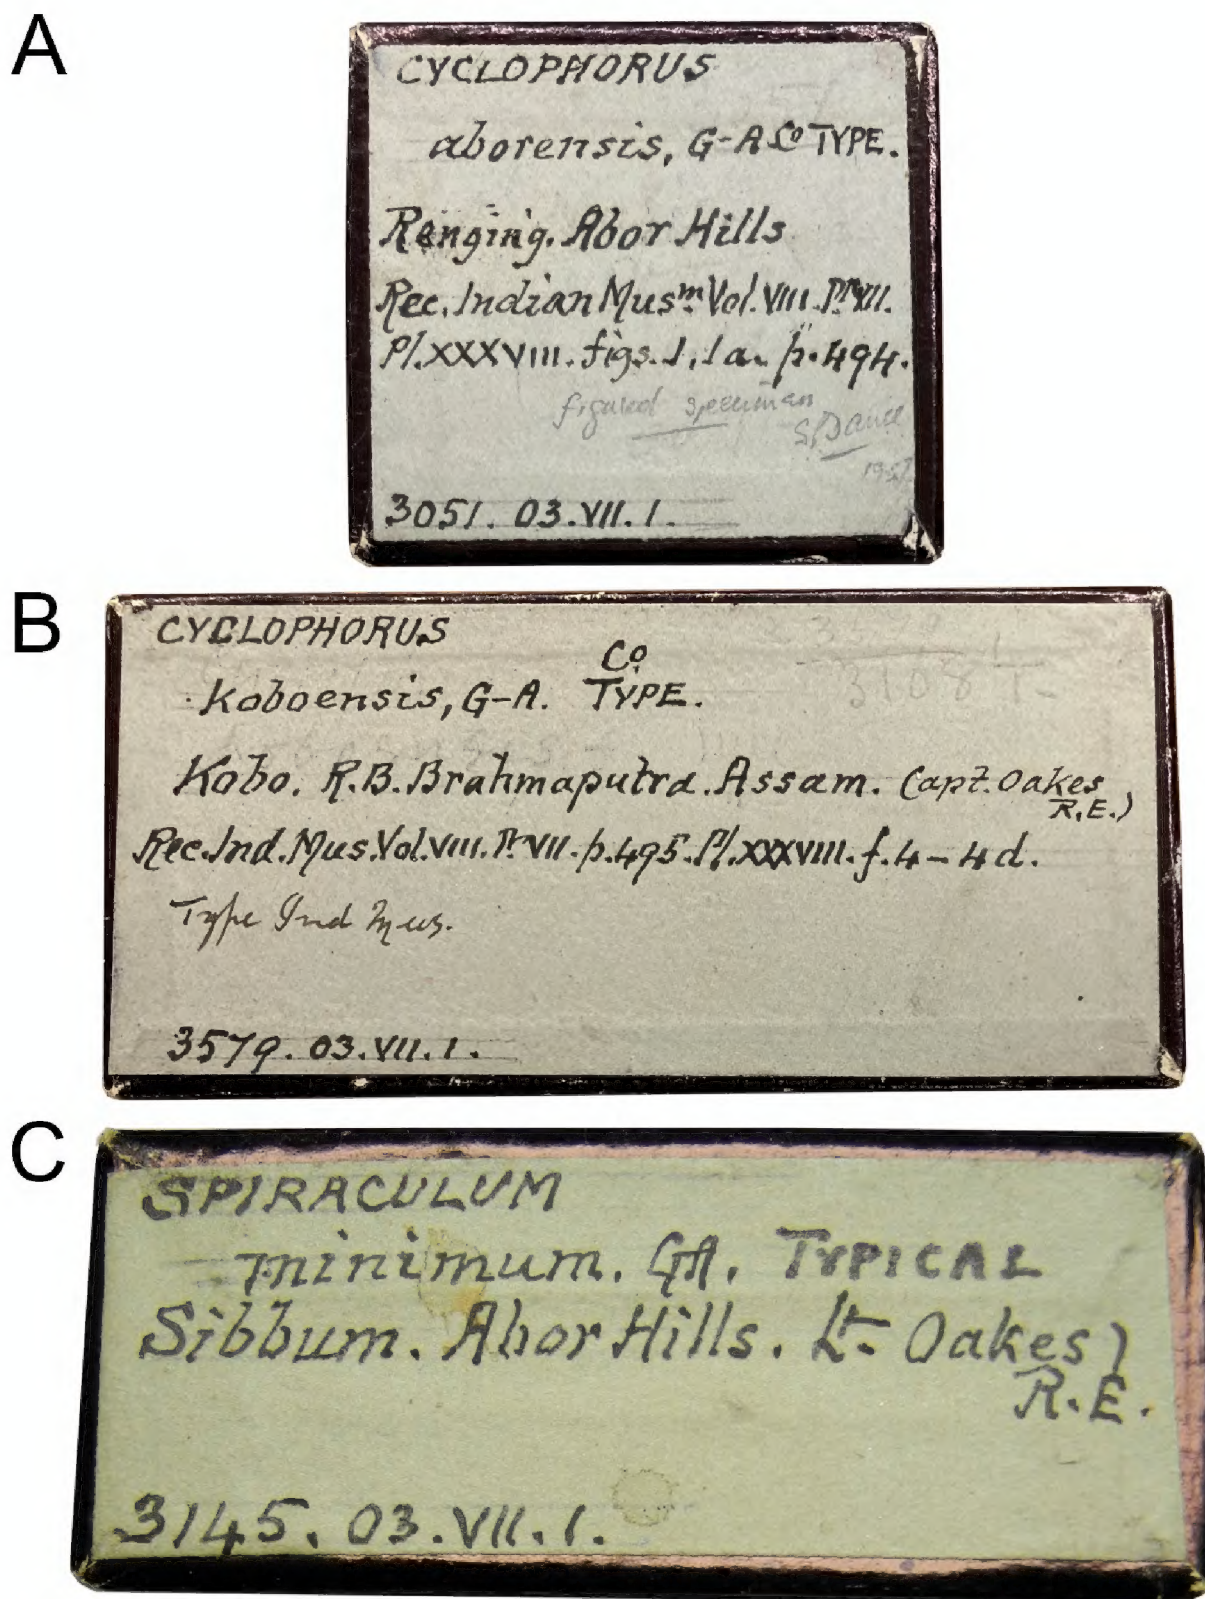 A
CYCLOPHORUS
aborensis, G-A Co TYPE.
Renging. Abor Hills
Rec. Indian Musm. Vol. VIII. Pt. VII.
Pl. XXXVIII. figs. 1, 1a. p. 494.
figured specimen
S.P. Dance
3051. 03. VII. 1.
B
CYCLOPHORUS
Koboensis, G-A. Co. TYPE.
3108
Kobo. R.B. Brahmaputra. Assam. (Capt. Oakes
R.E.)
Rec. Ind. Mus. Vol. VIII. Pt. VII. p. 495. Pl. XXXVIII. f. 4-4d.
Type Ind Mus.
3579. 03. VII. 1.
C
SPIRACULUM
minimum. GA. TYPICAL
Sibbum. Abor Hills. Lt. Oakes)
R.E.
3145. 03. VII. 1.